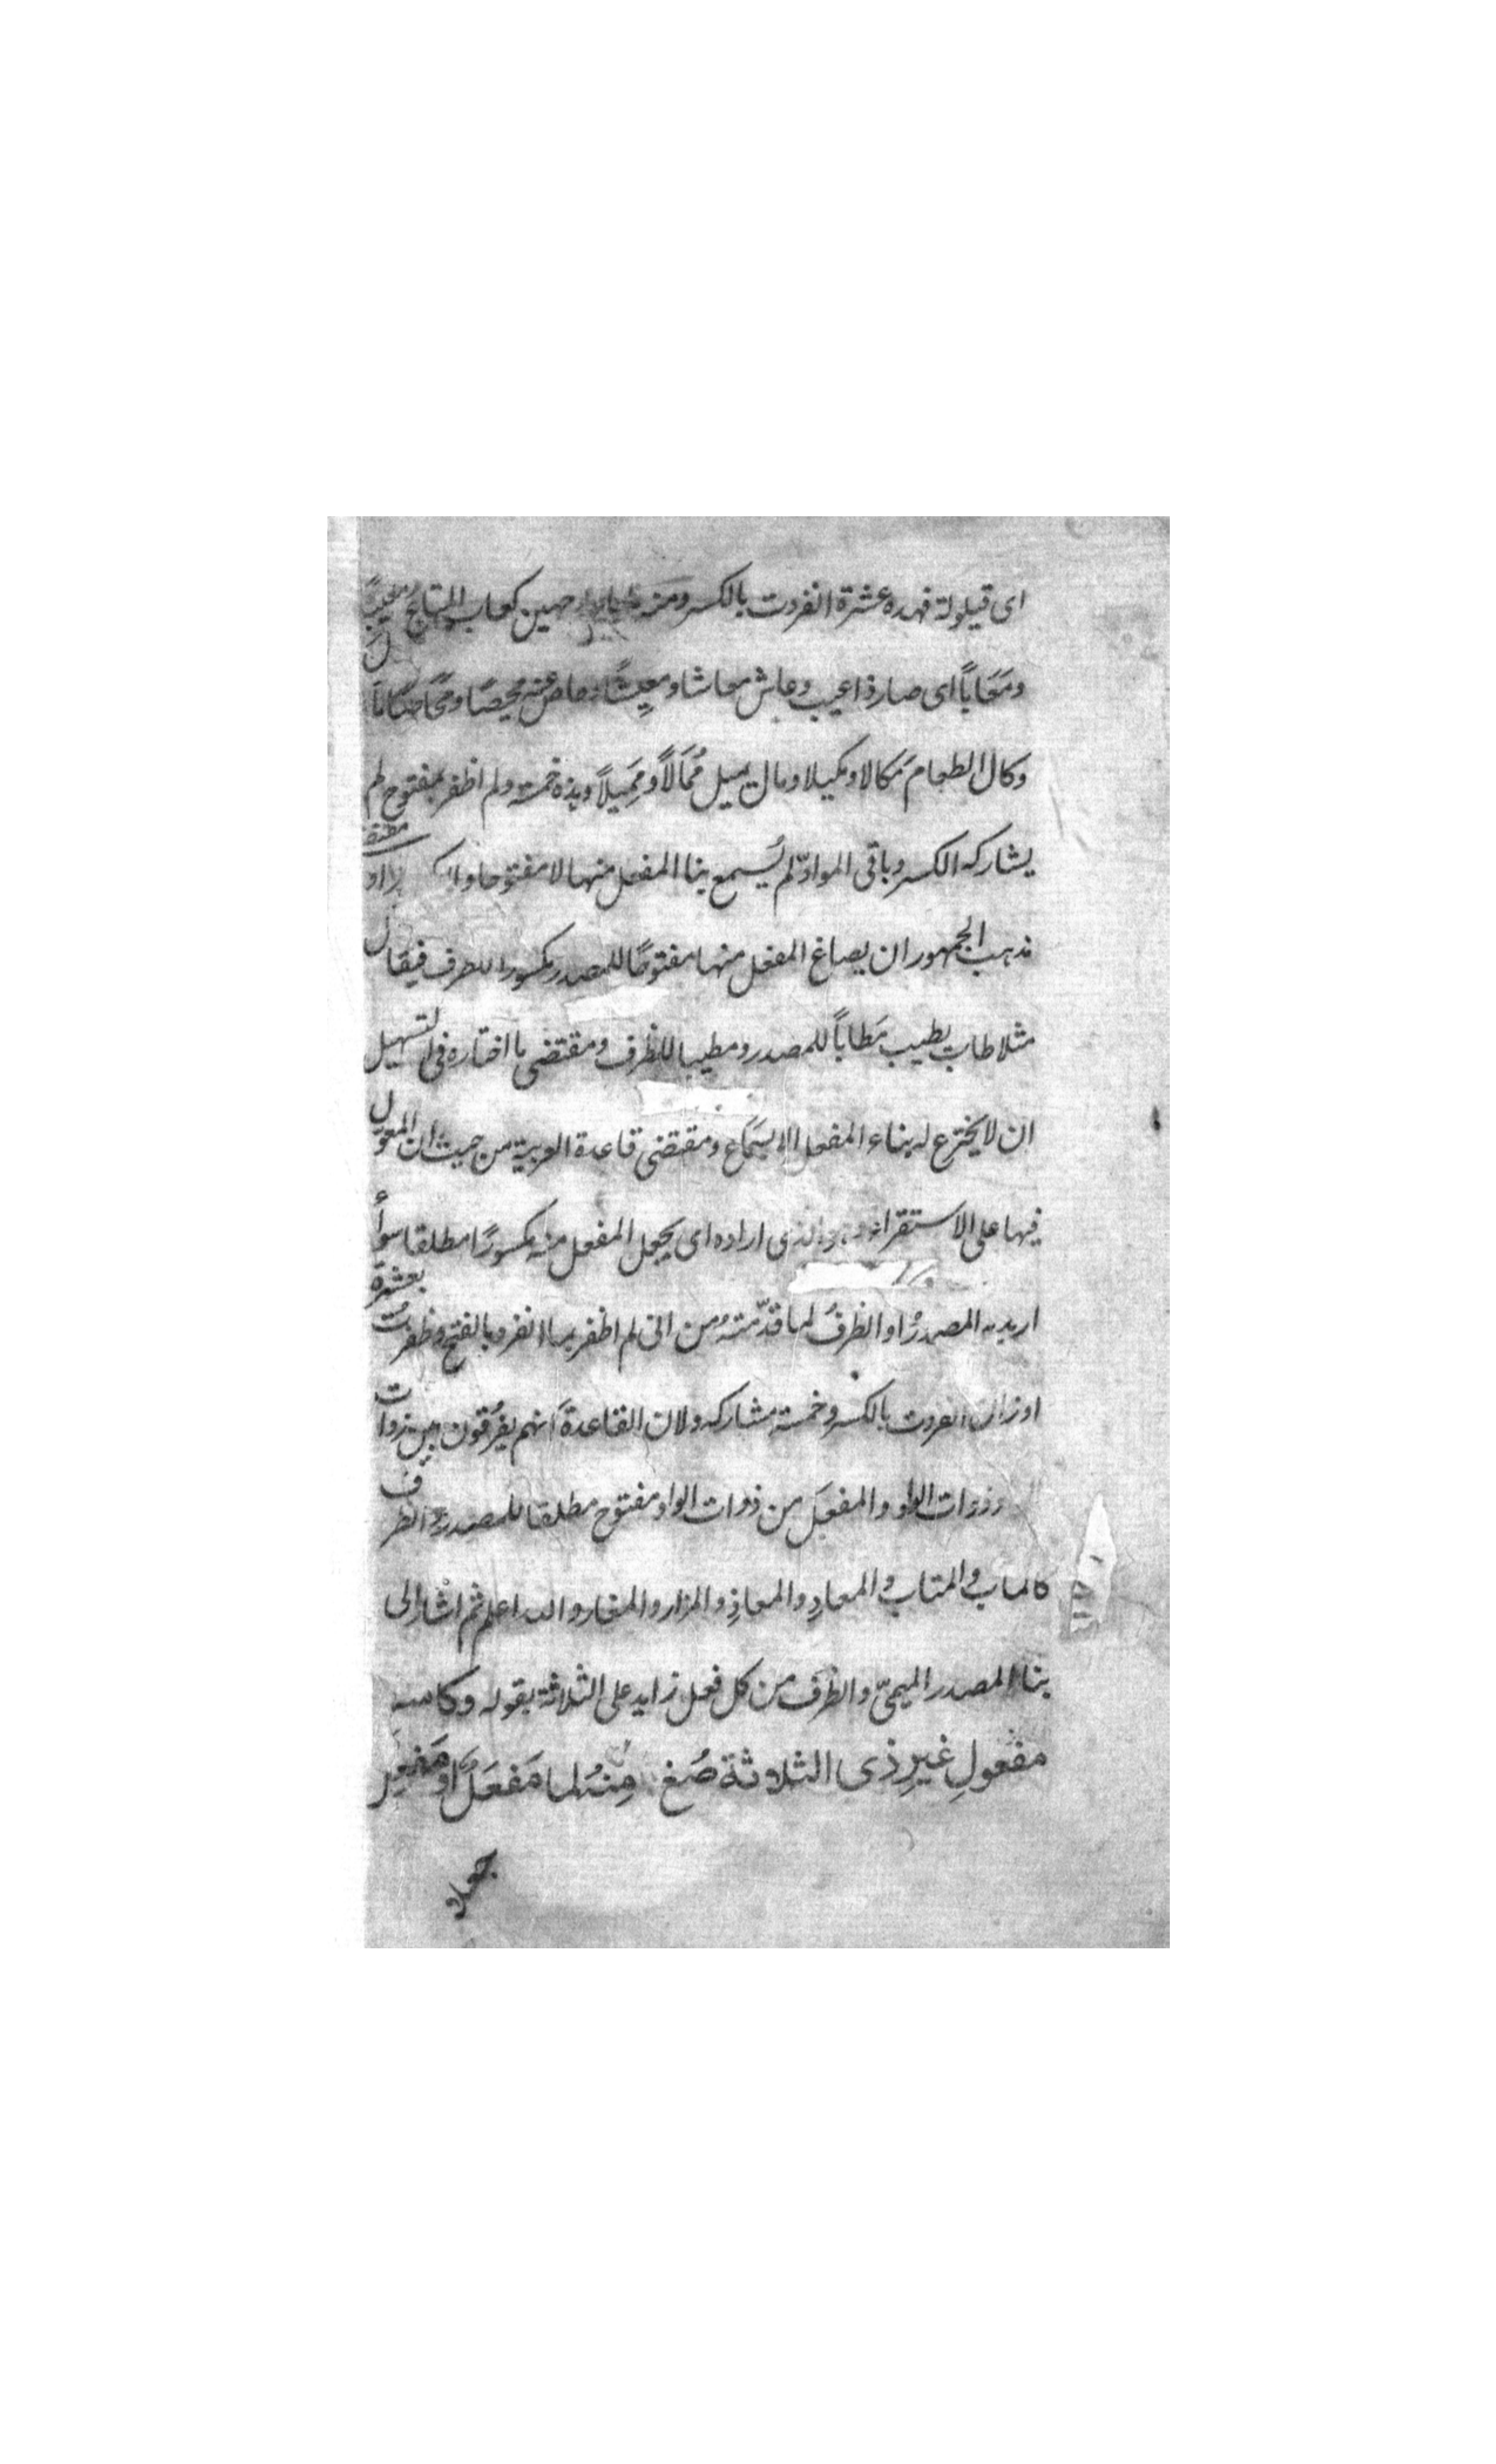 اى قيلولة فهذه عشرة انفردت بالكسر ومنه كعاب المتاع معيبًا
ومَعَاباً اى صار ذا عيب وعاش معاشا ومعيشًا وحاص عنه محيصًا ومَحَاصًا
وكال الطعام مَكالا ومكيلا ومال يميل مُمَالاً ومَمِيلاً وهذه خمسة ولم اظفر بمفتوح لم
يشاركه الكسر وباقى الموادّ لم يُسمع بنا المفعل منها لا مفتوحا ولا
مذهب الجمهور ان يصاغ المفعل منها مفتوحًا للمصدر مكسورا للظرف فيقال
مثلا طاب يطيب مَطاباً للمصدر ومطيبا للظرف ومقتضى ما اختاره فى التسهيل
ان لا يخترع له بناء المفعل الا بسَمَاع ومقتضى قاعدة العربية من حيث ان المعول
فيها على الاستقراء وهو الذى اراده اى يجعل المفعل منه مكسورًا مطلقا سواءٌ
اريد به المصدرُ او الظرفُ لما قدّمتهُ من انى لم اظفر بما انفرد بالفتح وظفرتُ بعشرة
اوزان انفردت بالكسر وخمسة مشاركه ولان القاعدةَ انهم يفرُقون بين ذوات
وذوات الواو والمفعَل من ذوات الواو مفتوح مطلقا للمصدر والظرف
كالمآب والمتاب والمعادِ والمعاذِ والمزار والمغار والله اعلم ثم اشار الى
بناء المصدر الميمىّ والظرف من كل فعل زايد على الثلاثة بقوله وكاسم
مفعولِ غيرِ ذى الثلاثة صُغ مِنهُ لما مَفعَلٌ او مَفعِل
جعلا